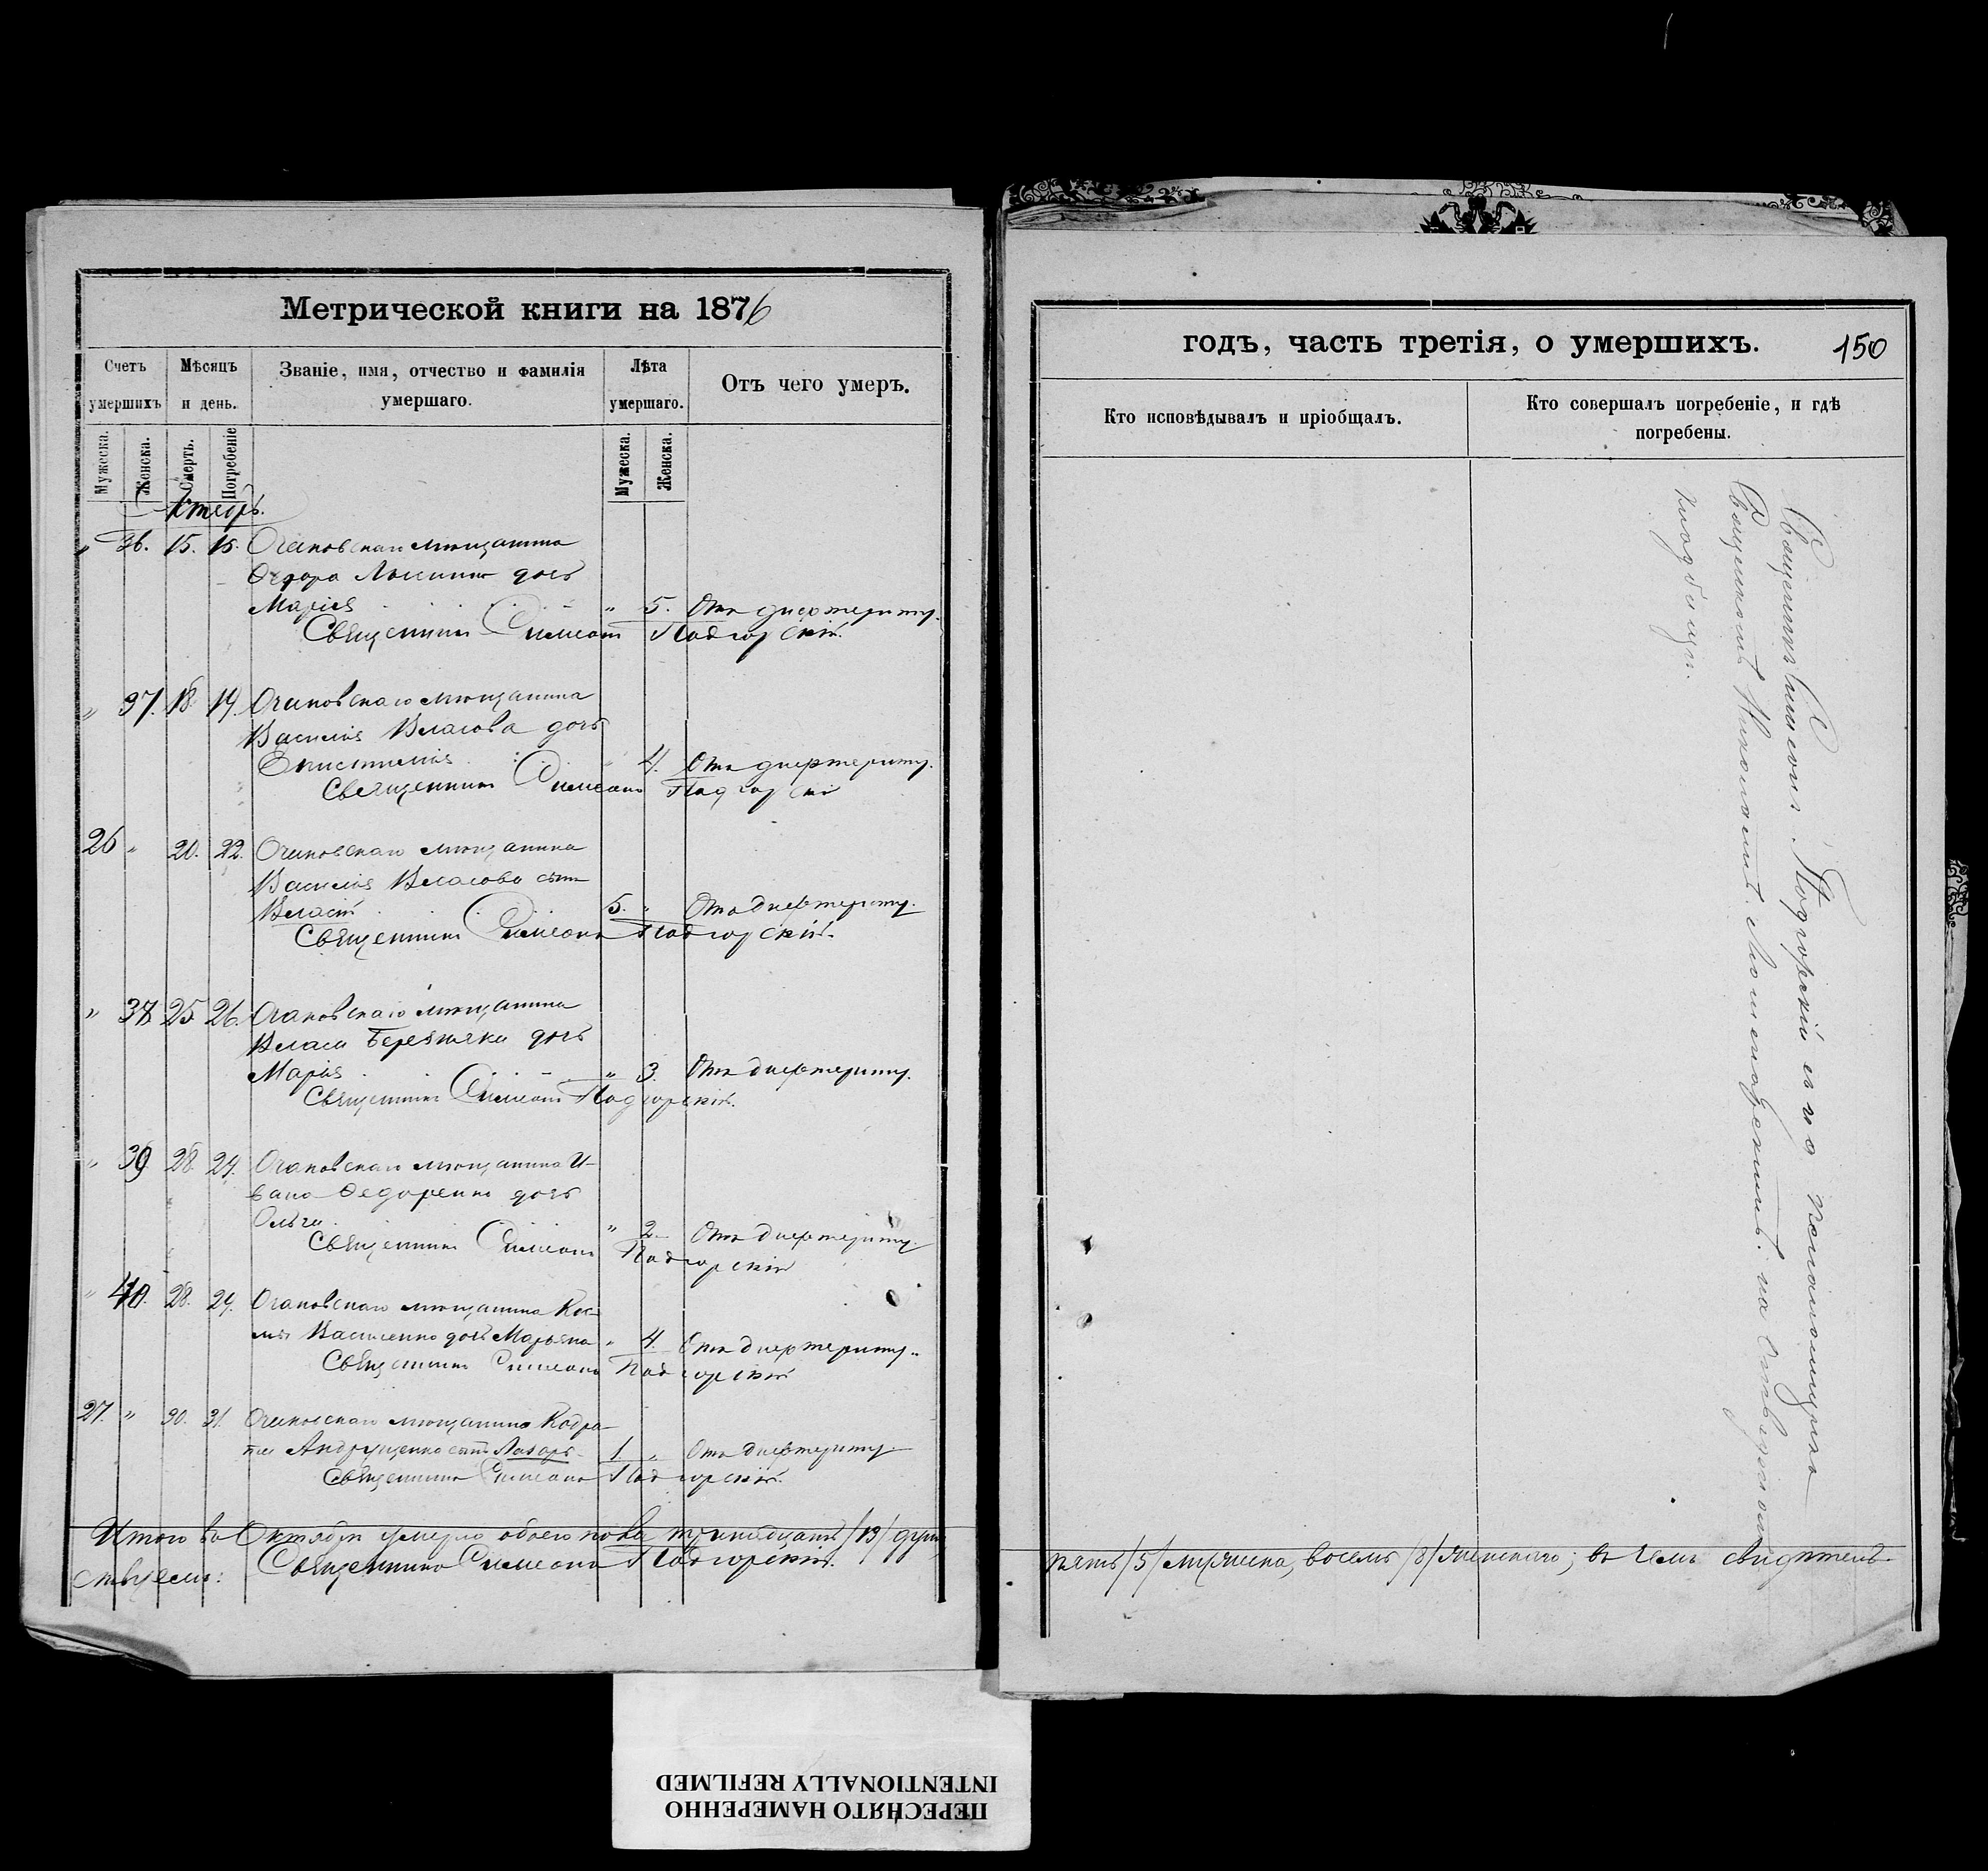 Метрической книги на 1876
Счетъ умершихъ
Мѣсяцъ и день.
Званіе, имя, отчество и фамилія умершаго.
Лѣта умершаго.
Отъ чего умеръ.
Мужеска.
Женска.
Смерть.
Погребеніе
Мужеска.
Женска.
Октябрь.
" 36. 15. 15. Очаковскаго мѣщанина
Ѳедора дочь
Марія " 5. Отъ дифтериту.
Священникъ Симеонъ Подгорскій.
" 37. 18. 19. Очаковскаго мѣщанина
Василія Власова дочь
4. Отъ дифтериту.
Священникъ Симеонъ Подгорскій
26 " 20. 22. Очаковскаго мѣщанина
Василія Власова сынъ
Власій 5. " Отъ дифтериту.
Священникъ Симеонъ Подгорскій.
" 38 25 26. Очаковскаго мѣщанина
Власа Березняка дочь
Марія " 3. Отъ дифтериту.
Священникъ Симеонъ Подгорскій.
" 39 28. 29. Очаковскаго мѣщанина И-
вана Ѳедоренко дочь
Ольга " 2 Отъ дифтериту.
Священникъ Симеонъ Подгорскій
" 40. 28. 29. Очаковскаго мѣщанина Кос-
мы Василенко дочь Марьяна " 4. Отъ дифтериту.
Священникъ Симеонъ Подгорскій
27. " 30. 31. Очаковскаго мѣщанина Кодра-
та Андрущенко сынъ Лазарь 1 " Отъ дифтериту.
Священникъ Симеонъ Подгорскій.
Итого въ Октябрѣ умерло обоего пола тринадцать /13/ душъ
ствуемъ: Священникъ Симеонъ Подгорскій.
годъ, часть третія, о умершихъ. 150
Кто исповѣдывалъ и пріобщалъ.
Кто совершалъ погребеніе, и гдѣ погребены.
Священникъ Симеонъ Подгорскій съ
Священникъ Николай на
кладбищѣ.
пять /5/ мужеска, восемь /8/ женскаго; въ чемъ свидѣтель-
ПЕРЕСНЯТО НАМЕРЕННО
INTENTIONALLY REFILMED